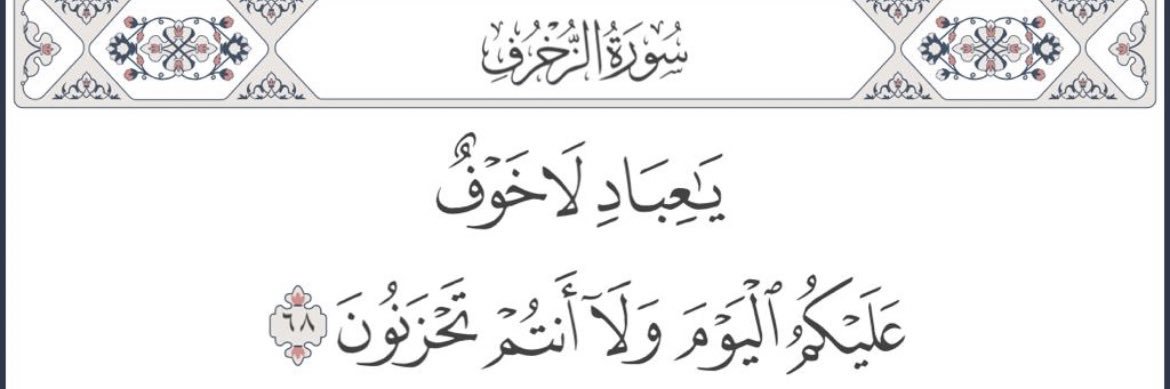 سُورَةُ الزُّخْرُفِ
يَـٰعِبَادِ لَا خَوْفٌ
عَلَيْكُمُ ٱلْيَوْمَ وَلَآ أَنتُمْ تَحْزَنُونَ ٦٨